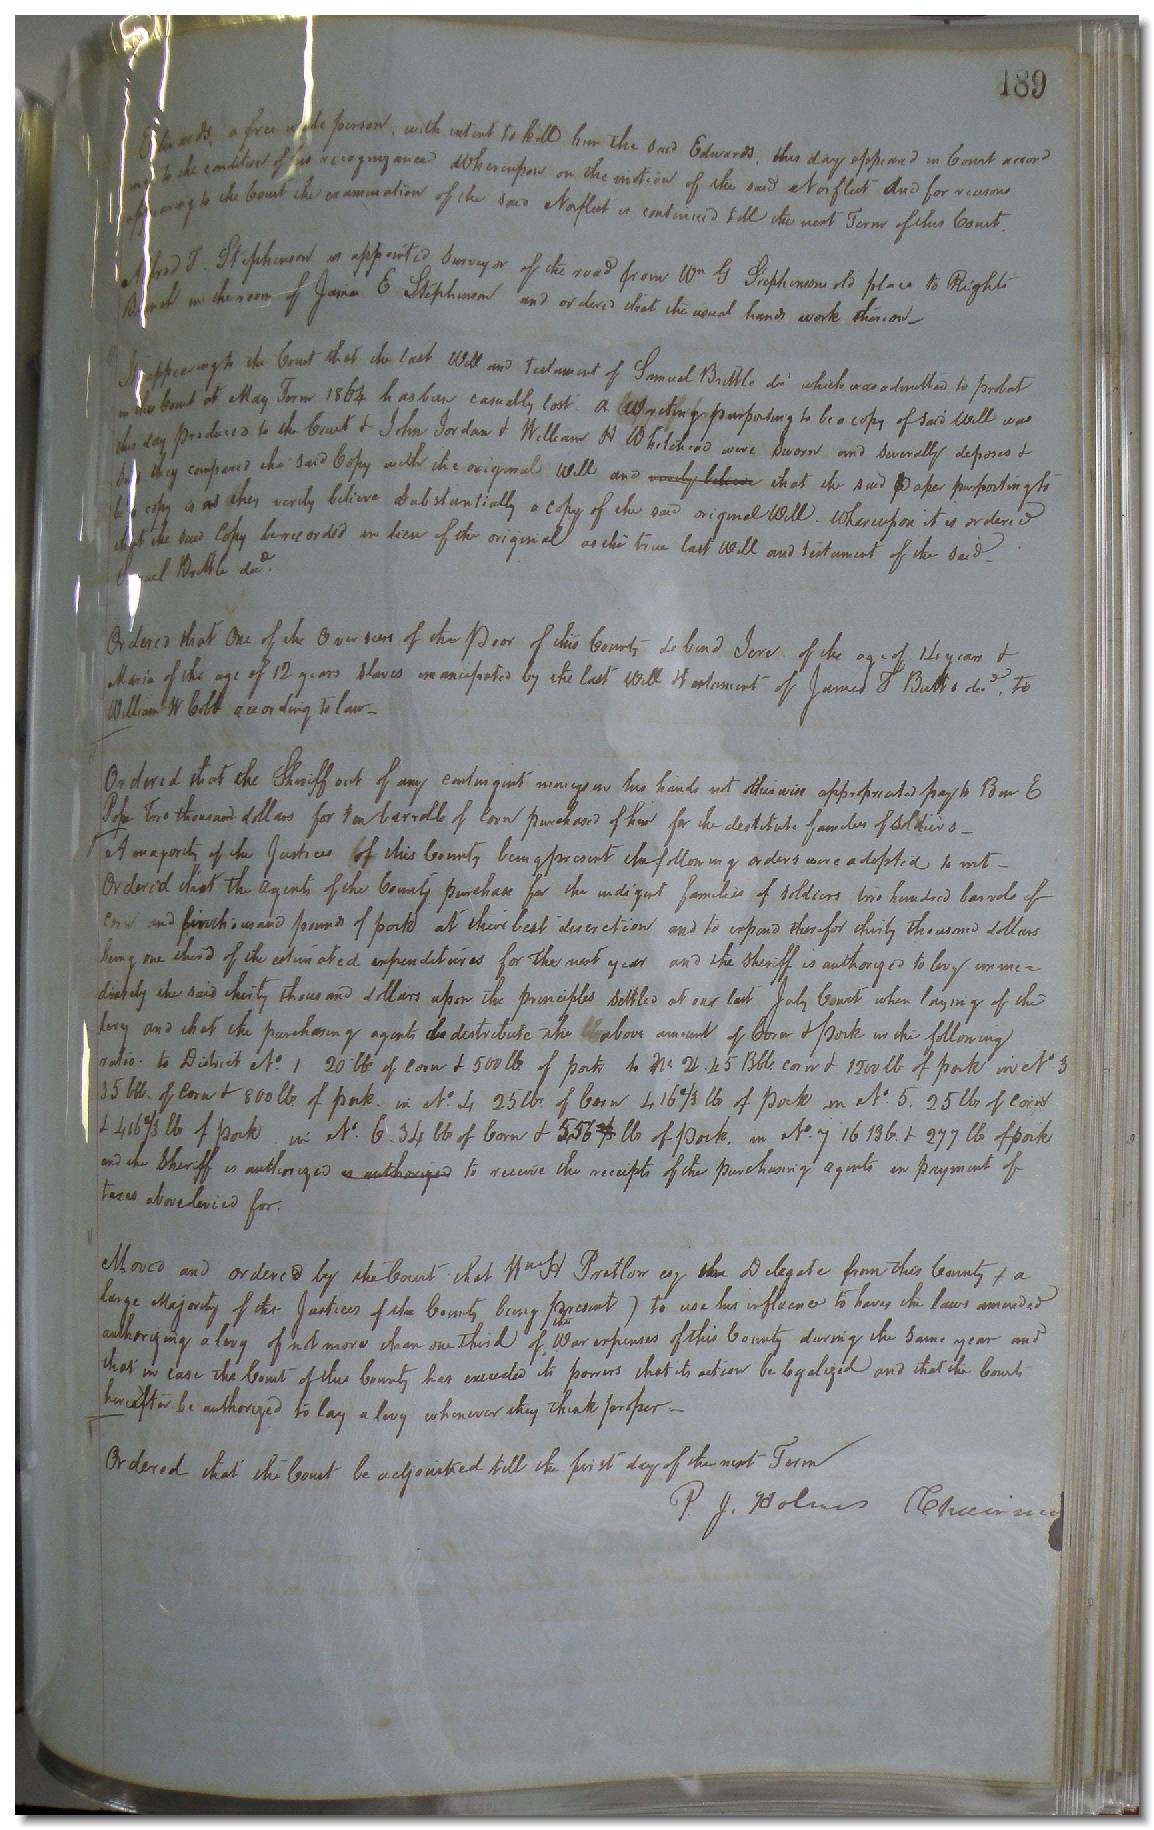 189
Edwards, a free male person, with intent to kill him the said Edwards, this day appeared in Court accord
ing to the condition of his recognizance Whereupon on the motion of the said Norfleet And for reasons
appearing to the Court the examination of the said Norfleet is continued till the next Term of this Court.
Alfred T. Stephenson is appointed Surveyor of the road from Wm G Stephensons old place to Rights
Branch in the room of James E Stephenson and ordered that the usual hands work thereon
It appearing to the Court that the last Will and testament of Samuel Brittle dec which was admitted to probat
in this Court at May Term 1864 has been casually lost. A Writing purporting to be a copy of said Will was
this day produced to the Court & John Jordan & William H Whitehead were sworn and severally deposes &
say they compared the said Copy with the original Will and verily believe that the said Paper purporting to
be a copy is as they verily believe substantially a copy of the said original Will. Whereupon it is ordered
that the said Copy be recorded in lieu of the original as the true last Will and testament of the said
Samuel Brittle decd.
Ordered that One of the Overseers of the Poor of this County to bind Jere of the age of 14 years &
Maria of the age of 12 years slaves emancipated by the last Will & testament of James T Butts decd, to
William W Cobb according to law_
Ordered that the Sheriff out of any contingent moneys in his hands not otherwise appropriated pay to Ben E
Pope Two thousand dollars for ten barrells of corn purchased of him for the destitute families of soldiers_
A majority of the Justices of this County being present the following orders were adopted to wit_
Ordered that the agents of the County purchase for the indigent families of soldiers two hundred barrels of
corn and five thousand pounds of pork at their best discretion and to expend therefor thirty thousand dollars
being one third of the estimated expenditures for the next year and the sheriff is authorized to levy imme=
diately the said thirty thousand dollars upon the principles settled at our last July Court when laying of the
levy and that the purchasing agents do destribute the above amount of Corn & Pork in the following
ratio. to District No. 1 20 bb of corn & 500 lb of pork to No. 2 45 Bbls corn & 1200 lb of pork in No 3
35 bbl. of corn & 800 lb. of pork. in No. 4 25 lb. of Corn 416 2/3 lb of pork in No. 5. 25 lb of corn
& 416 2/3 lb of pork in No. 6. 34 lb of Corn & 556 lb of pork. in No. 7 16 Bb. & 277 lb of pork
and the Sheriff is authorized is authorized to receive the receipts of the purchasing agents in payment of
taxes above levied for.
Moved and ordered by the Court that Wm H Pretlow esq the Delegate from this County ( a
large Majority of the Justices of the County being present ) to use his influence to have the laws amended
authorizing a levy of not more than one third of the War expenses of this County during the same year and
that in case the Court of this County has exceeded its powers that its action be legalized and that the Courts
hereafter be authorized to lay a levy whenever they think proper_
Ordered that the Court be adjourned till the first day of the next Term
P. J. Holmes Chairman